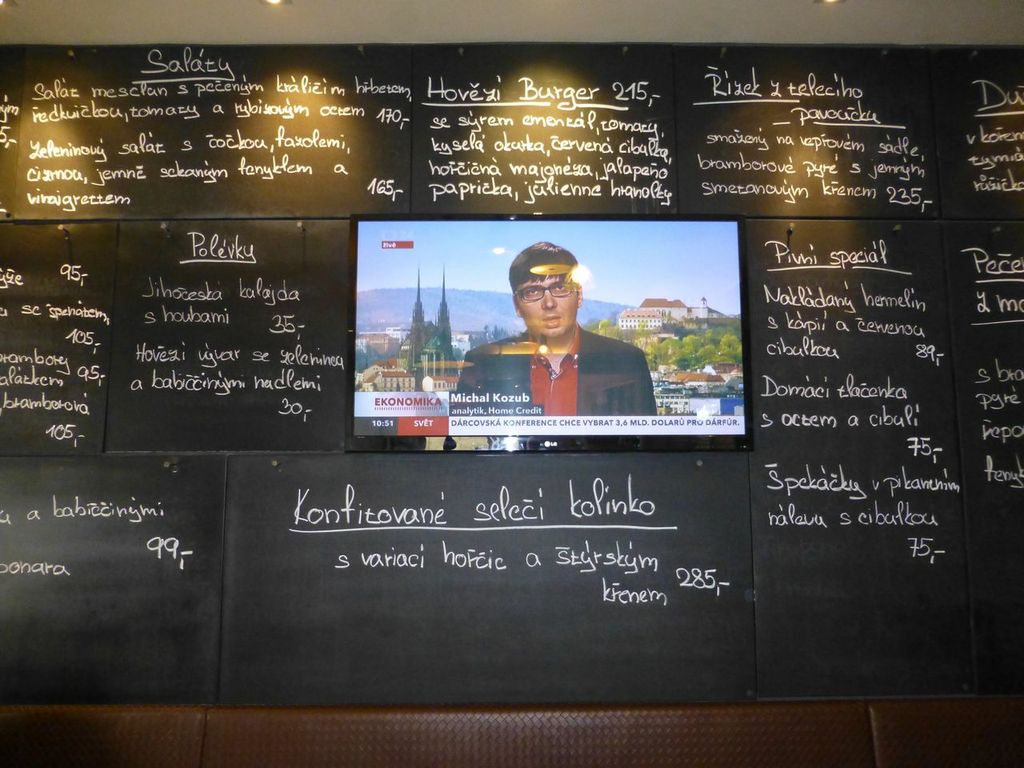 Saláty
Salát mesclan s pečeným králičím hřbetem,
ředkvičkou, tomaty a rybízovým octem 170,-
Zeleninový salát s čočkou, fazolemi,
cizrnou, jemně sekaným fenyklem a
vinaigrettem 165,-
Hovězí Burger 215,-
se sýrem ementál, tomaty,
kyselá okurka, červená cibulka,
hořčičná majonéza, jalapeño
paprička, jülienne hranolky
Řízek z telecího
pavoučku
smažený na vepřovém sádle,
bramborové pyré s jemným
smetanovým křenem 235,-
v kořen
95,-
se špenátem,
105,-
brambory 95,-
bramborová
105,-
Polévky
Jihočeská kulajda
s houbami 35,-
Hovězí vývar se zeleninou
a babiččinými nudlemi
30,-
živě
EKONOMIKA
Michal Kozub
analytik, Home Credit
10:51 SVĚT DÁRCOVSKÁ KONFERENCE CHCE VYBRAT 3,6 MLD. DOLARŮ PRO DÁRFÚR.
LG
Pivní speciál
Nakládaný hermelín
s kápií a červenou
cibulkou 89,-
Domácí tlačenka
s octem a cibulí
75,-
Špekáčky v pikantním
nálevu s cibulkou
75,-
Peče
z ma
s bra
pyré
řepo
fenyk
a babiččinými
99,-
bonara
Konfitované selečí kolínko
s variací hořčic a štýrským
křenem 285,-